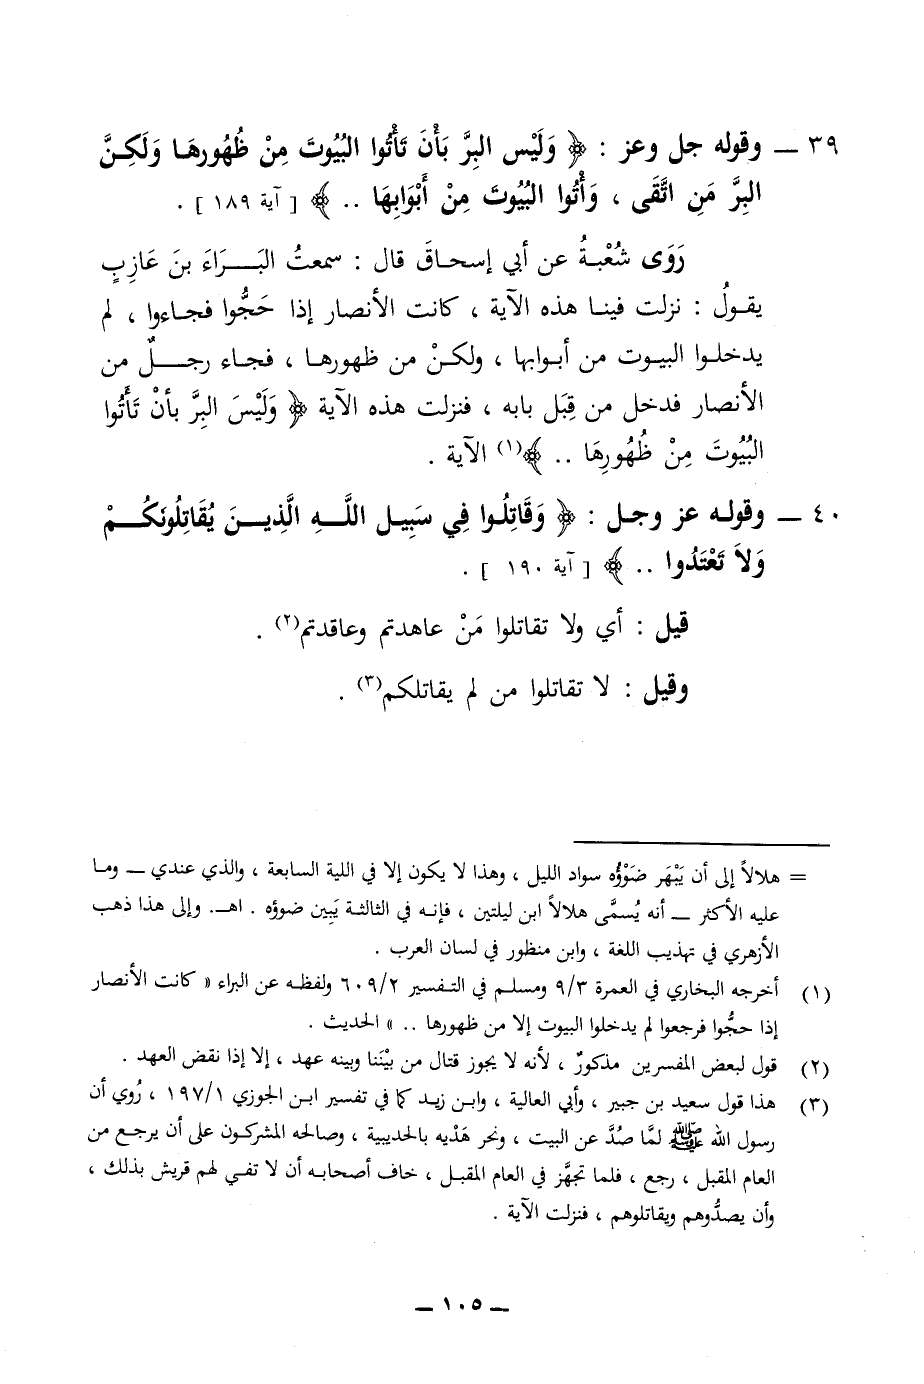 ٣٩ ـ وقوله جل وعز : ﴿ وَلَيْس البِرَّ بَأْنَ تَأْتُوا البُيُوتَ مِنْ ظُهُورهَا وَلَكِنَّ
البِرَّ مَنِ اتَّقَى ، وَأْتُوا البُيُوتَ مِنْ أَبْوَابِهَا .. ﴾ [ آية ١٨٩ ] .
رَوَى شُعْبةُ عن أبي إسحاقَ قال : سمعتُ البَرَاءَ بنَ عَازِبٍ
يقولُ : نزلت فينا هذه الآية ، كانت الأنصار إذا حَجُّوا فجاءوا ، لم
يدخلوا البيوت من أبوابها ، ولكنْ من ظهورها ، فجاء رجلٌ من
الأنصار فدخل من قِبَل بابه ، فنزلت هذه الآية ﴿ وَلَيْسَ البِرَّ بأنْ تَأْتُوا
البُيُوتَ مِنْ ظُهُورِهَا .. ﴾(١) الآية .
٤٠ ـ وقوله عز وجل : ﴿ وَقَاتِلُوا فِي سَبِيلِ اللَّهِ الَّذِينَ يُقَاتِلُونَكُمْ
وَلاَ تَعْتَدُوا .. ﴾ [ آية ١٩٠ ] .
قيل : أي ولا تقاتلوا مَنْ عاهدتم وعاقدتم(٢) .
وقيل : لا تقاتلوا من لم يقاتلكم(٣) .
= هلالاً إلى أن يَبْهَر ضَوْؤُه سواد الليل ، وهذا لا يكون إلا في اللية السابعة ، والذي عندي ـ وما
عليه الأكثر ـ أنه يُسمَّى هلالاً ابن ليلتين ، فإنه في الثالثة يَبِين ضوؤه . اهـ. وإلى هذا ذهب
الأزهري في تهذيب اللغة ، وابن منظور في لسان العرب .
(١) أخرجه البخاري في العمرة ٩/٣ ومسلم في التفسير ٦٠٩/٢ ولفظه عن البراء « كانت الأنصار
إذا حجُّوا فرجعوا لم يدخلوا البيوت إلا من ظهورها .. » الحديث .
(٢) قول لبعض المفسرين مذكورٌ ، لأنه لا يجوز قتال من بيْنَنا وبينه عهد ، إلا إذا نقض العهد .
(٣) هذا قول سعيد بن جبير ، وأبي العالية ، وابن زيد كما في تفسير ابن الجوزي ١٩٧/١ ، رُوي أن
رسول الله ﷺ لمَّا صُدَّ عن البيت ، ونحر هَدْيه بالحديبية ، وصالحه المشركون على أن يرجع من
العام المقبل ، رجع ، فلما تجهَّز في العام المقبل ، خاف أصحابه أن لا تفي لهم قريش بذلك ،
وأن يصدُّوهم ويقاتلوهم ، فنزلت الآية .
ـ ١٠٥ ـ